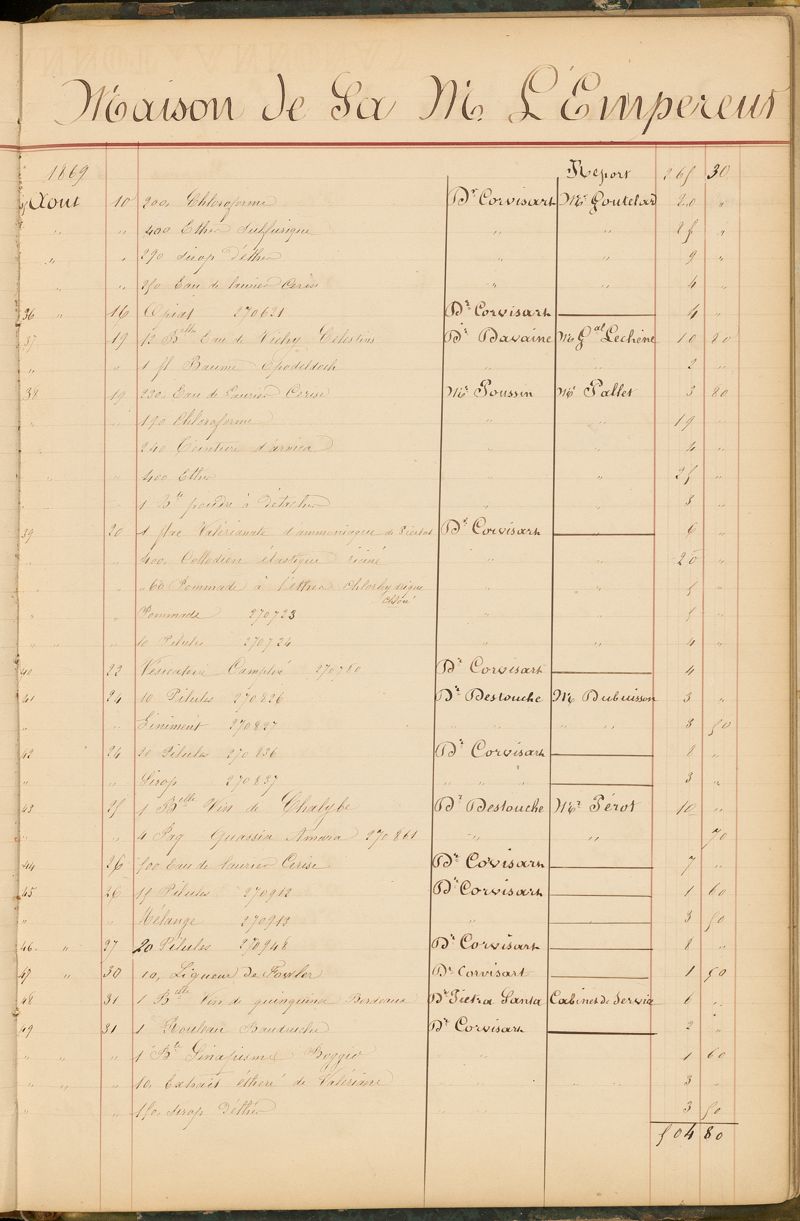 Maison de Sa M. L'Empereur
1869 Report 265 30
Aout 10 200, Chloroforme Dr Corvisart Mr Goutelar 20 "
" " 400 Ether Sulfurique " " 25 "
" " 290 Sirop D'éther " " 9 "
" " 250 Eau de laurier Cerise " " 4 "
36 " 16 Opiat 270631 Dr Corvisart 4 "
37 19 12 Blle Eau de Vichy Célestins Dr Davaine M Gal Lechêne 10 20
" " 1 fl Baume Opodeldoch " " 2 "
38 19 230, Eau de Laurier Cerise Mr Poussin Mr Pallet 3 80
" 190 Chloroforme " " 19 "
" 240 Teinture d'arnica " " 4 "
" 400 Ether " " 25 "
" 1 Bte poudre à Détacher " " 3 "
39 20 1 flac Valérianate d'ammoniaque de Pierlot Dr Corvisart 6 "
400, Collodion élastique riciné " 20 "
60 Pommade à l'éther Chlorhydrique chloré " 5 "
" Pommade 270723 " " 5 "
" " 10 Pilules 270724 " " 4 "
40 22 Vésicatoire Camphré 270780 Dr Corvisart 4
41 24 10 Pilules 270826 Dr Destouche Mr Dubuisson 3 "
" " Liniment 270827 " " 3 50
42 24 20 Pilules 270836 Dr Corvisart 2 "
" " Sirop 270837 " " 3 "
43 25 1 Blle Vin de Chalybe Dr Destouche Mr Pérot 10 "
" " 4 Paq Quassia Amara 270861 " " 70
44 26 500 Eau de laurier Cerise Dr Covisart 7 "
45 26 15 Pilules 270912 Dr Corvisart 1 60
" " Mélange 270913 " 3 50
46 " 27 20 Pilules 270948 Dr Corvisart 2 "
47 " 30 10, Liqueur de Fowler Dr Corvisart 1 50
48 31 1 Blle Vin de quinquina Bordeaux Dr Pietra Santa Cabinet de Service 6 "
49 31 1 Rouleau Baudruche Dr Corvisart 2 "
" " 1 Bte Sinapisme Boggio " " 1 60
" " " 10, Extrait éthéré de Valériane " " 3 "
" " 150, Sirop D'éther " " 3 50
504 80